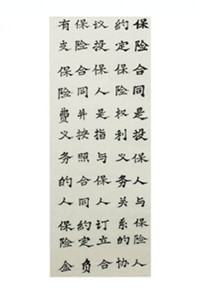 保险合同是投保人与保险人
约定保险权利义务关系的协
议投保人是指与保险人订立
保险合同并按照合同约定负
有支保险费义务的人保险金